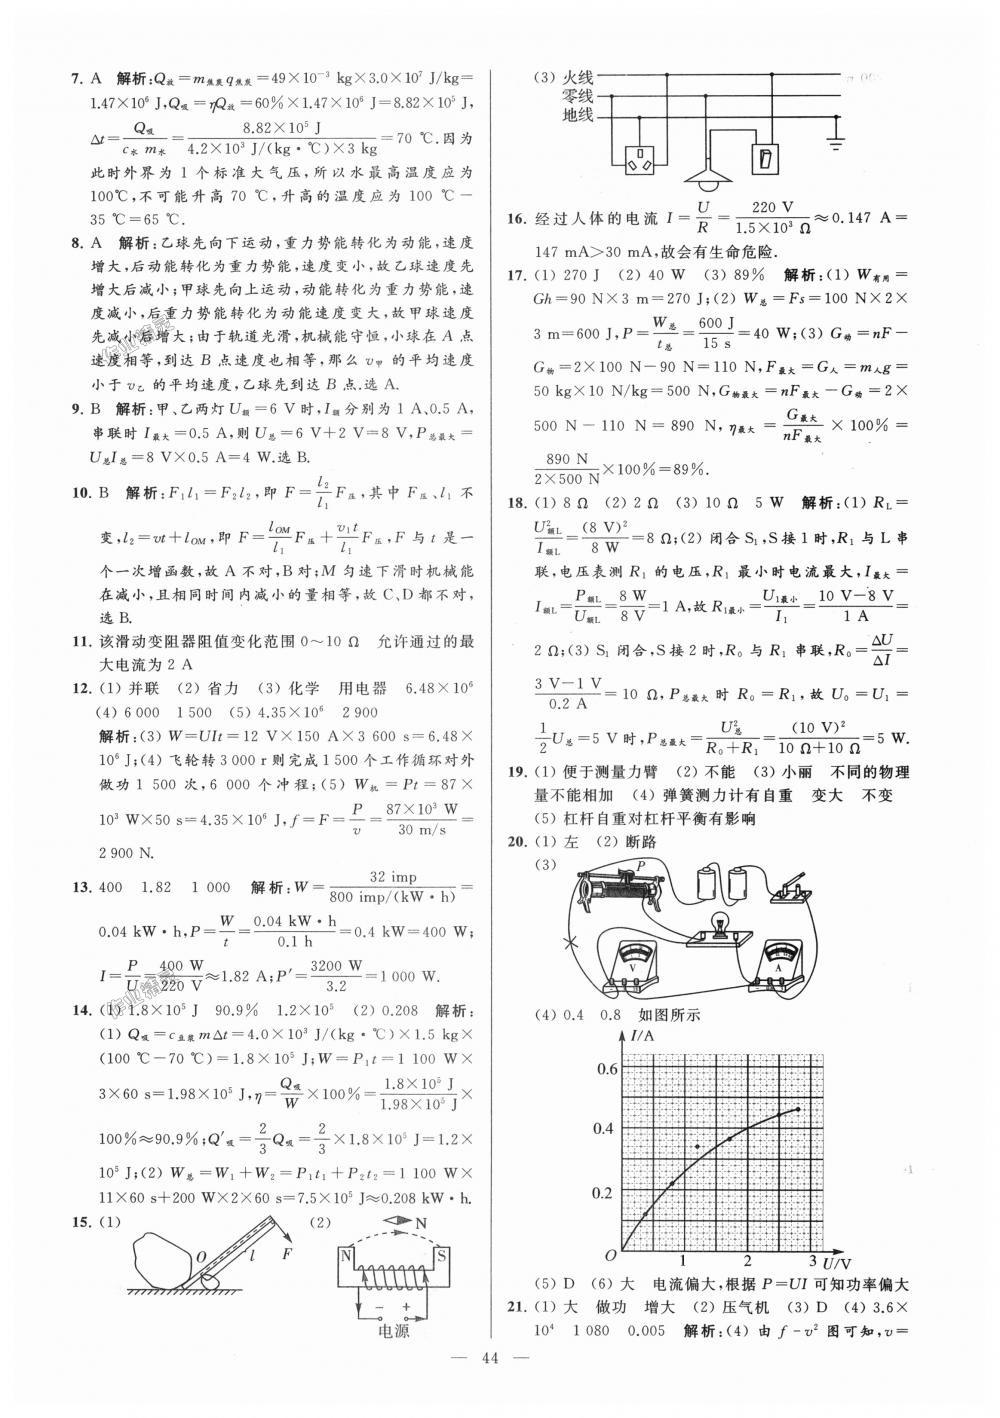 7. A 解析:Q放=m焦炭q焦炭=49×10⁻³ kg×3.0×10⁷ J/kg=
1.47×10⁶ J,Q吸=ηQ放=60%×1.47×10⁶ J=8.82×10⁵ J,
Δt=Q吸/(c水 m水)=8.82×10⁵ J/(4.2×10³ J/(kg·℃)×3 kg)=70 ℃.因为
此时外界为 1 个标准大气压,所以水最高温度应为
100℃,不可能升高 70 ℃,升高的温度应为 100 ℃-
35 ℃=65 ℃.
8. A 解析:乙球先向下运动,重力势能转化为动能,速度
增大,后动能转化为重力势能,速度变小,故乙球速度先
增大后减小;甲球先向上运动,动能转化为重力势能,速
度减小,后重力势能转化为动能速度变大,故甲球速度
先减小后增大;由于轨道光滑,机械能守恒,小球在 A 点
速度相等,到达 B 点速度也相等,那么 v甲 的平均速度
小于 v乙 的平均速度,乙球先到达 B 点.选 A.
9. B 解析:甲、乙两灯 U额=6 V时,I额 分别为 1 A、0.5 A,
串联时 I最大=0.5 A,则 U总=6 V+2 V=8 V,P总最大=
U总I总=8 V×0.5 A=4 W.选 B.
10. B 解析:F₁l₁=F₂l₂,即 F=l₂/l₁ F压,其中 F压、l₁ 不
变,l₂=vt+lOM,即 F=lOM/l₁ F压+v₁t/l₁ F压,F 与 t 是一
个一次增函数,故 A 不对,B对;M 匀速下滑时机械能
在减小,且相同时间内减小的量相等,故 C、D 都不对,
选 B.
11. 该滑动变阻器阻值变化范围 0～10 Ω 允许通过的最
大电流为 2 A
12. (1) 并联 (2) 省力 (3) 化学 用电器 6.48×10⁶
(4) 6 000 1 500 (5) 4.35×10⁶ 2 900
解析:(3) W=UIt=12 V×150 A×3 600 s=6.48×
10⁶ J;(4) 飞轮转 3 000 r 则完成 1 500 个工作循环对外
做功 1 500 次,6 000 个冲程;(5) W机=Pt=87×
10³ W×50 s=4.35×10⁶ J,f=F=P/v=87×10³ W/30 m/s=
2 900 N.
13. 400 1.82 1 000 解析:W=32 imp/(800 imp/(kW·h))=
0.04 kW·h,P=W/t=0.04 kW·h/0.1 h=0.4 kW=400 W;
I=P/U=400 W/220 V≈1.82 A;P′=3200 W/3.2=1 000 W.
14. (1) 1.8×10⁵ J 90.9% 1.2×10⁵ (2) 0.208 解析:
(1) Q吸=c豆浆mΔt=4.0×10³ J/(kg·℃)×1.5 kg×
(100 ℃-70 ℃)=1.8×10⁵ J;W=P₁t=1 100 W×
3×60 s=1.98×10⁵ J,η=Q吸/W×100%=1.8×10⁵ J/1.98×10⁵ J×
100%≈90.9%;Q′吸=2/3Q吸=2/3×1.8×10⁵ J=1.2×
10⁵ J;(2) W总=W₁+W₂=P₁t₁+P₂t₂=1 100 W×
11×60 s+200 W×2×60 s=7.5×10⁵ J≈0.208 kW·h.
15. (1)
O l F
(2)
N
N S
- +
电源
(3) 火线
零线
地线
16. 经过人体的电流 I=U/R=220 V/1.5×10³ Ω≈0.147 A=
147 mA>30 mA,故会有生命危险.
17. (1) 270 J (2) 40 W (3) 89% 解析:(1) W有用=
Gh=90 N×3 m=270 J;(2) W总=Fs=100 N×2×
3 m=600 J,P=W总/t总=600 J/15 s=40 W;(3) G动=nF-
G物=2×100 N-90 N=110 N,F最大=G人=m人g=
50 kg×10 N/kg=500 N,G物最大=nF最大-G动=2×
500 N-110 N=890 N,η最大=G最大/nF最大×100%=
890 N/2×500 N×100%=89%.
18. (1) 8 Ω (2) 2 Ω (3) 10 Ω 5 W 解析:(1) RL=
U²额L/I额L=(8 V)²/8 W=8 Ω;(2) 闭合 S₁,S接 1 时,R₁ 与 L 串
联,电压表测 R₁ 的电压,R₁ 最小时电流最大,I最大=
I额L=P额L/U额L=8 W/8 V=1 A,故 R₁最小=U₁最小/I₁=10 V-8 V/1 A=
2 Ω;(3) S₁ 闭合,S 接 2 时,R₀ 与 R₁ 串联,R₀=ΔU/ΔI=
3 V-1 V/0.2 A=10 Ω,P总最大 时 R₀=R₁,故 U₀=U₁=
1/2U总=5 V 时,P总最大=U²总/(R₀+R₁)=(10 V)²/(10 Ω+10 Ω)=5 W.
19. (1) 便于测量力臂 (2) 不能 (3) 小丽 不同的物理
量不能相加 (4) 弹簧测力计有自重 变大 不变
(5) 杠杆自重对杠杆平衡有影响
20. (1) 左 (2) 断路
(3)
P
V A
(4) 0.4 0.8 如图所示
I/A
0.6
0.4
0.2
O 1 2 3 U/V
(5) D (6) 大 电流偏大,根据 P=UI 可知功率偏大
21. (1) 大 做功 增大 (2) 压气机 (3) D (4) 3.6×
10⁴ 1 080 0.005 解析:(4) 由 f-v² 图可知,v=
— 44 —